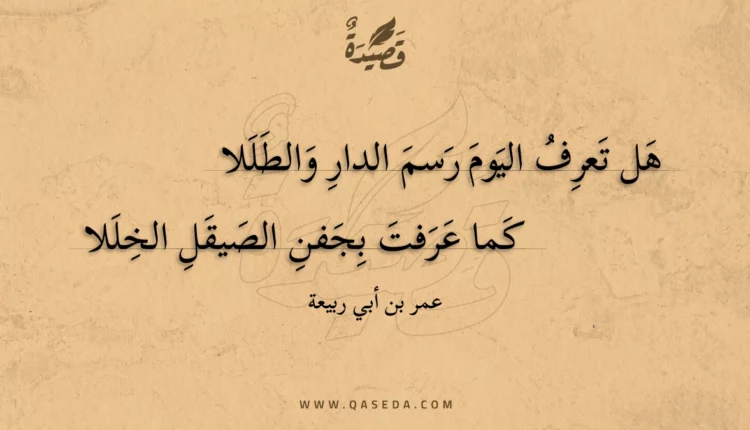 قَصِيْدَةٌ
هَل تَعرِفُ اليَومَ رَسمَ الدارِ وَالطَلَلا
كَما عَرَفتَ بِجَفنِ الصَيقَلِ الخِلَلا
عمر بن أبي ربيعة
WWW.QASEDA.COM